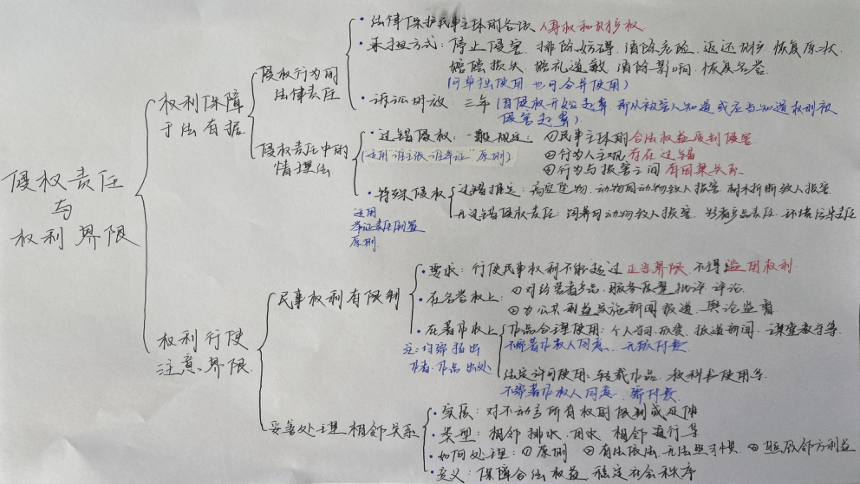 侵权责任
与
权利界限
权利保障
于法有据
侵权行为的
法律责任
·法律保护民事主体的各项人身权和财产权
·承担方式：停止侵害、排除妨碍、消除危险、返还财产、恢复原状、
赔偿损失、赔礼道歉、消除影响、恢复名誉.
(可单独使用 也可合并使用)
·诉讼时效：三年 (因侵权开始起算，即从被害人知道或应当知道权利被
侵害起算).
侵权责任中的
情理法
·过错侵权：一般规定：①民事主体的合法权益受到侵害
(适用"谁主张 谁举证"原则)
②行为人主观存在过错
③行为与损害之间有因果关系.
·特殊侵权
适用
举证责任倒置
原则.
过错推定：高空坠物、动物园动物致人损害 树木折断致人损害
无过错侵权责任：饲养的动物致人损害、产品责任、环境污染责任
权利行使
注意界限
民事权利有限制
·要求：行使民事权利不能超过正当界限，不得滥用权利.
·在名誉权上：①对经营者产品、服务质量批评、评论.
②为公共利益实施新闻报道、舆论监督.
·在著作权上
注：均需指出
作者、作品出处
作品合理使用：个人学习、欣赏、报道新闻、课堂教学等.
不需著作权人同意、无须付费.
法定许可使用：转载作品、教科书使用等.
不需著作权人同意、需付费.
妥善处理相邻关系
·实质：对不动产所有权的限制或延伸
·类型：相邻排水、用水 相邻通行等
·如何处理：①原则 ②有法依法 无法照习惯 ③照顾邻方利益
·意义：保障合法权益 稳定社会秩序